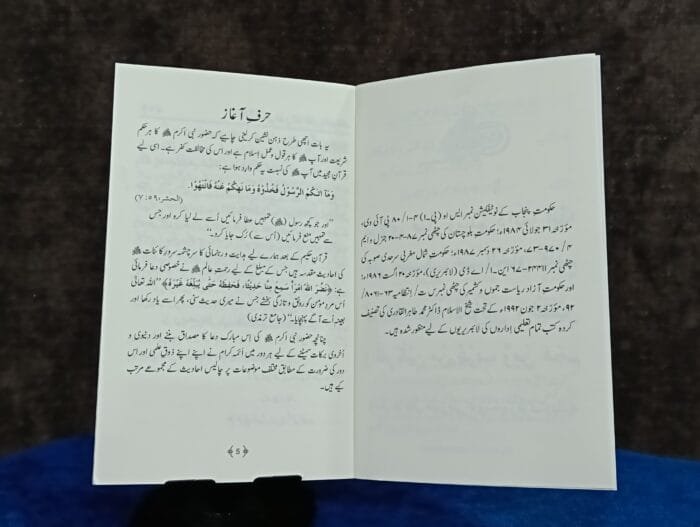 حرفِ آغاز
یہ بات اچھی طرح ذہن نشین کر لینی چاہیے کہ حضور نبی اکرم ﷺ کا ہر حکم
شریعت اور آپ ﷺ کا ہر قول و عمل اسلام ہے اور اس کی مخالفت کفر ہے۔ اسی لیے
قرآن مجید میں آپ ﷺ کی نسبت یہ حکم وارد ہوا ہے:
وَمَآ اٰتٰکُمُ الرَّسُوْلُ فَخُذُوْهُ وَمَا نَهٰکُمْ عَنْهُ فَانْتَهُوْا.
(الحشر، ۵۹: ۷)
’’اور جو کچھ رسول (ﷺ) تمہیں عطا فرمائیں اُسے لے لیا کرو اور جس
سے تمہیں منع فرمائیں (اُس سے) رُک جایا کرو۔‘‘
قرآن حکیم کے بعد ہمارے لیے ہدایت و رہنمائی کا سرچشمہ سرورِ کائنات ﷺ
کی احادیث مقدسہ ہیں جس کے مبلغ کے لیے رحمتِ عالم ﷺ نے خصوصی دعا فرمائی
ہے: ﴿نَضَّرَ اللهُ امْرَأً سَمِعَ مِنَّا حَدِيْثًا، فَحَفِظَهُ حَتّٰى يُبَلِّغَهُ غَيْرَهُ﴾ ’’اللہ تعالیٰ
اُس مردِ مومن کو رونق و تازگی بخشے جس نے میری حدیث سنی، پھر اسے یاد رکھا اور
بعینہ اُسے آگے پہنچایا۔‘‘ (جامع ترمذی)
چنانچہ حضور نبی اکرم ﷺ کی اس مبارک دعا کا مصداق بننے اور دنیوی و
اُخروی برکات سمیٹنے کے لیے ہر دور میں ائمہ کرام نے اپنے اپنے ذوقِ علمی اور اس
دور کی ضرورت کے مطابق مختلف موضوعات پر چالیس احادیث کے مجموعے مرتب
کیے ہیں۔
﴿5﴾
حکومتِ پنجاب کے نوٹیفکیشن نمبر ایس او (پی۔۱) ۴۔۱ / ۸۰ پی آئی وی،
مؤرّخہ ۳۱ جولائی ۱۹۸۴ء؛ حکومتِ بلوچستان کی چٹھی نمبر ۸۷۔۴۔۲۰ جنرل و ایم
۴ / ۹۷۰۔۷۳، مؤرّخہ ۲۶ دسمبر ۱۹۸۷ء؛ حکومتِ شمال مغربی سرحدی صوبہ کی
چٹھی نمبر ۲۴۴۱۱۔۶۷ این۔۱ / اے ڈی (لائبریری)، مؤرّخہ ۲۰ اگست ۱۹۸۶ء؛
اور حکومتِ آزاد ریاست جموں و کشمیر کی چٹھی نمبر س ت / انتظامیہ ۶۳۔۸۰۶۱ /
۹۲، مؤرّخہ ۲ جون ۱۹۹۲ء کے تحت شیخ الاسلام ڈاکٹر محمد طاہر القادری کی تصنیف
کردہ کتب تمام تعلیمی اداروں کی لائبریریوں کے لیے منظور شدہ ہیں۔